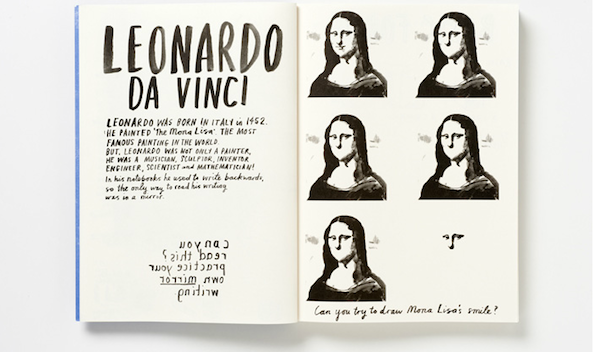 LEONARDO
DA VINCI
LEONARDO WAS BORN IN ITALY in 1452.
HE PAINTED 'The Mona Lisa'. THE MOST
FAMOUS PAINTING IN THE WORLD.
BUT, LEONARDO WAS NOT ONLY A PAINTER,
HE WAS A MUSICIAN, SCULPTOR, INVENTOR
ENGINEER, SCIENTIST and MATHEMATICIAN!
In his notebooks he used to write backwards,
so the only way to read his writing
was in a mirror.
can you
read this?
practice your
own mirror
writing
Can you try to draw Mona Lisa's smile?